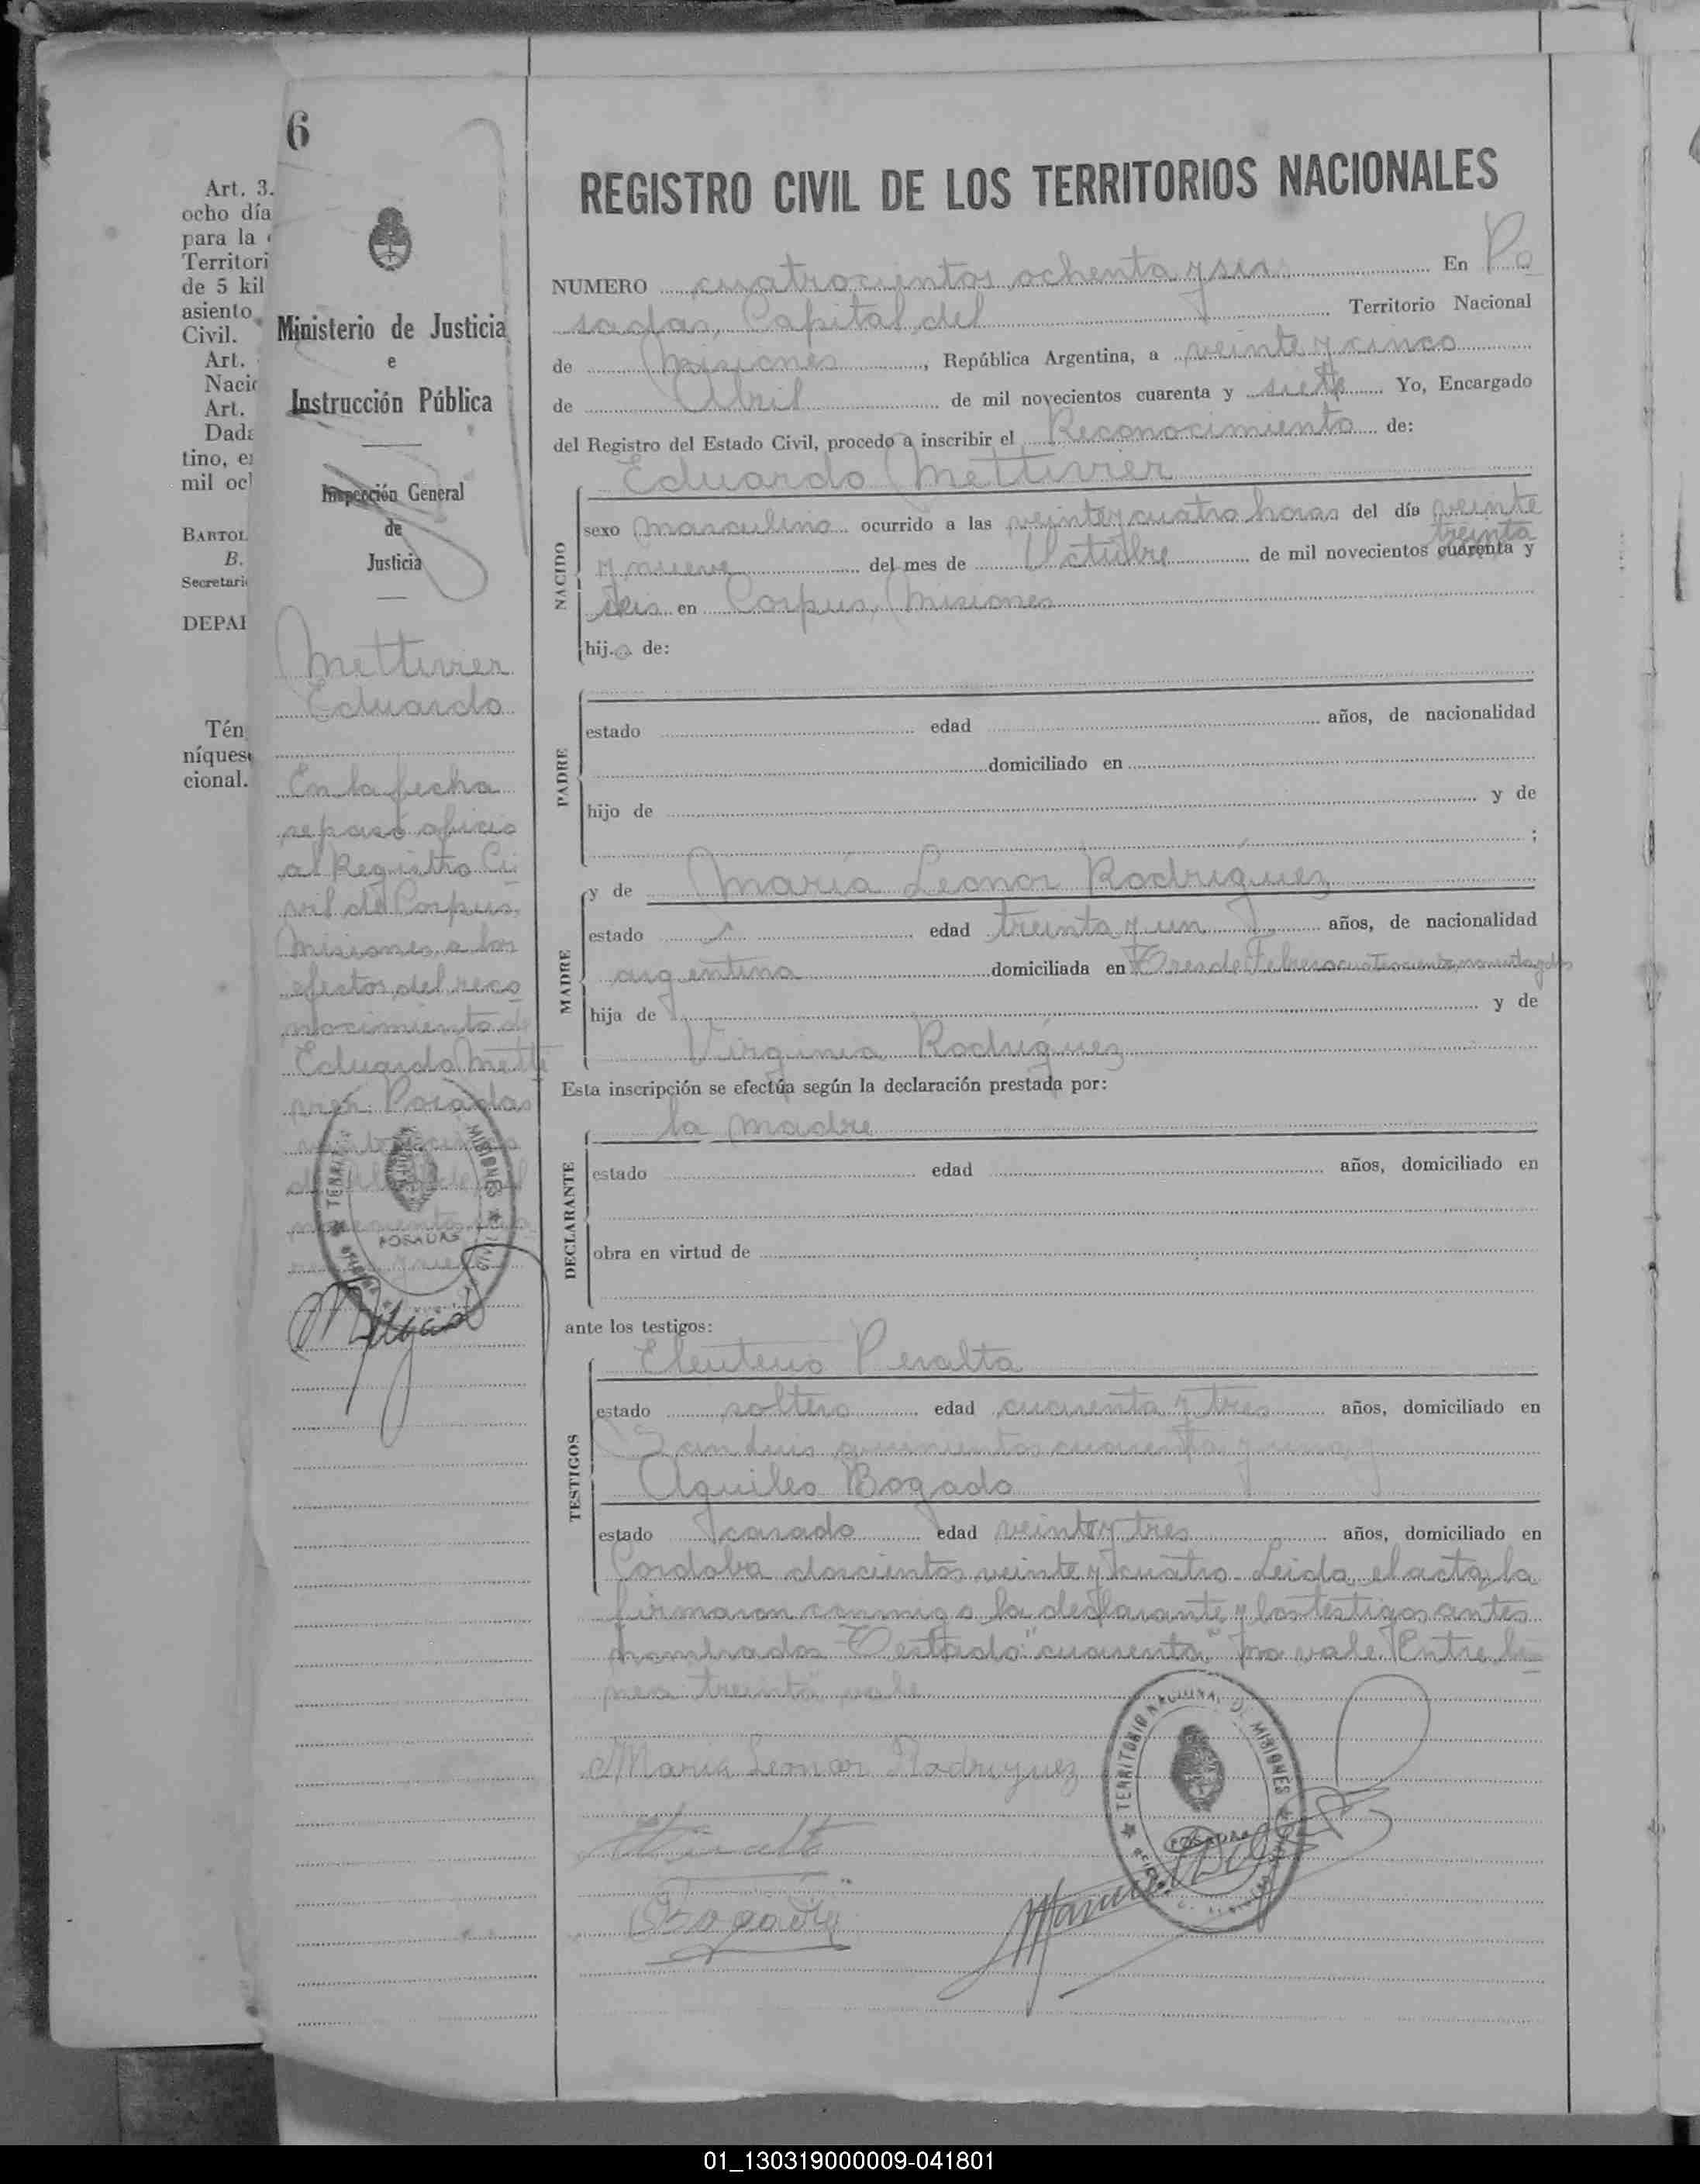 6
Art. 3.
ocho día
para la
Territori
de 5 kil
asiento
Civil.
Art.
Nacio
Art.
Dada
tino, e
mil oc
BARTOL
B.
Secretari
DEPAI
Tén
níquese
cional.
Ministerio de Justicia
e
Instrucción Pública
Inspección General
de
Justicia
Mettivier
Eduardo
En la fecha
se pasó oficio
al Registro Ci
vil de Corpus
Misiones a los
efectos del reco
nocimiento de
Eduardo Metti
vier. Posadas
TERRIT MISIONES
POSADAS
REGISTRO CIVIL DE LOS TERRITORIOS NACIONALES
NUMERO cuatrocientos ochenta y seis En Po
sadas, Capital del Territorio Nacional
de Misiones, República Argentina, a veinte y cinco
de Abril de mil novecientos cuarenta y siete Yo, Encargado
del Registro del Estado Civil, procedo a inscribir el Reconocimiento de:
Eduardo Mettivier
NACIDO
sexo masculino ocurrido a las veinte y cuatro horas del día veinte
treinta
y nueve del mes de Octubre de mil novecientos cuarenta y
seis en Corpus, Misiones
hijo de:
PADRE
estado edad años, de nacionalidad
domiciliado en
hijo de y de
;
MADRE
y de María Leonor Rodríguez
estado s edad treinta y un años, de nacionalidad
argentina domiciliada en Tres de Febrero cuatrocientos noventa y dos
hija de y de
Virginia Rodríguez
Esta inscripción se efectúa según la declaración prestada por:
la madre
DECLARANTE
estado edad años, domiciliado en
obra en virtud de
ante los testigos:
TESTIGOS
Eleuterio Peralta
estado soltero edad cuarenta y tres años, domiciliado en
San Luis quinientos cuarenta y uno y
Aquileo Bogado
estado casado edad veinte y tres años, domiciliado en
Cordoba doscientos veinte y cuatro. Leida el acta, la
firmaron conmigo la declarante y los testigos antes
nombrados. Testado "cuarenta" no vale. Entre li-
nea treinta vale
María Leonor Rodriguez
Bogado
TERRITORIO NACIONAL DE MISIONES
POSADAS
01_130319000009-041801